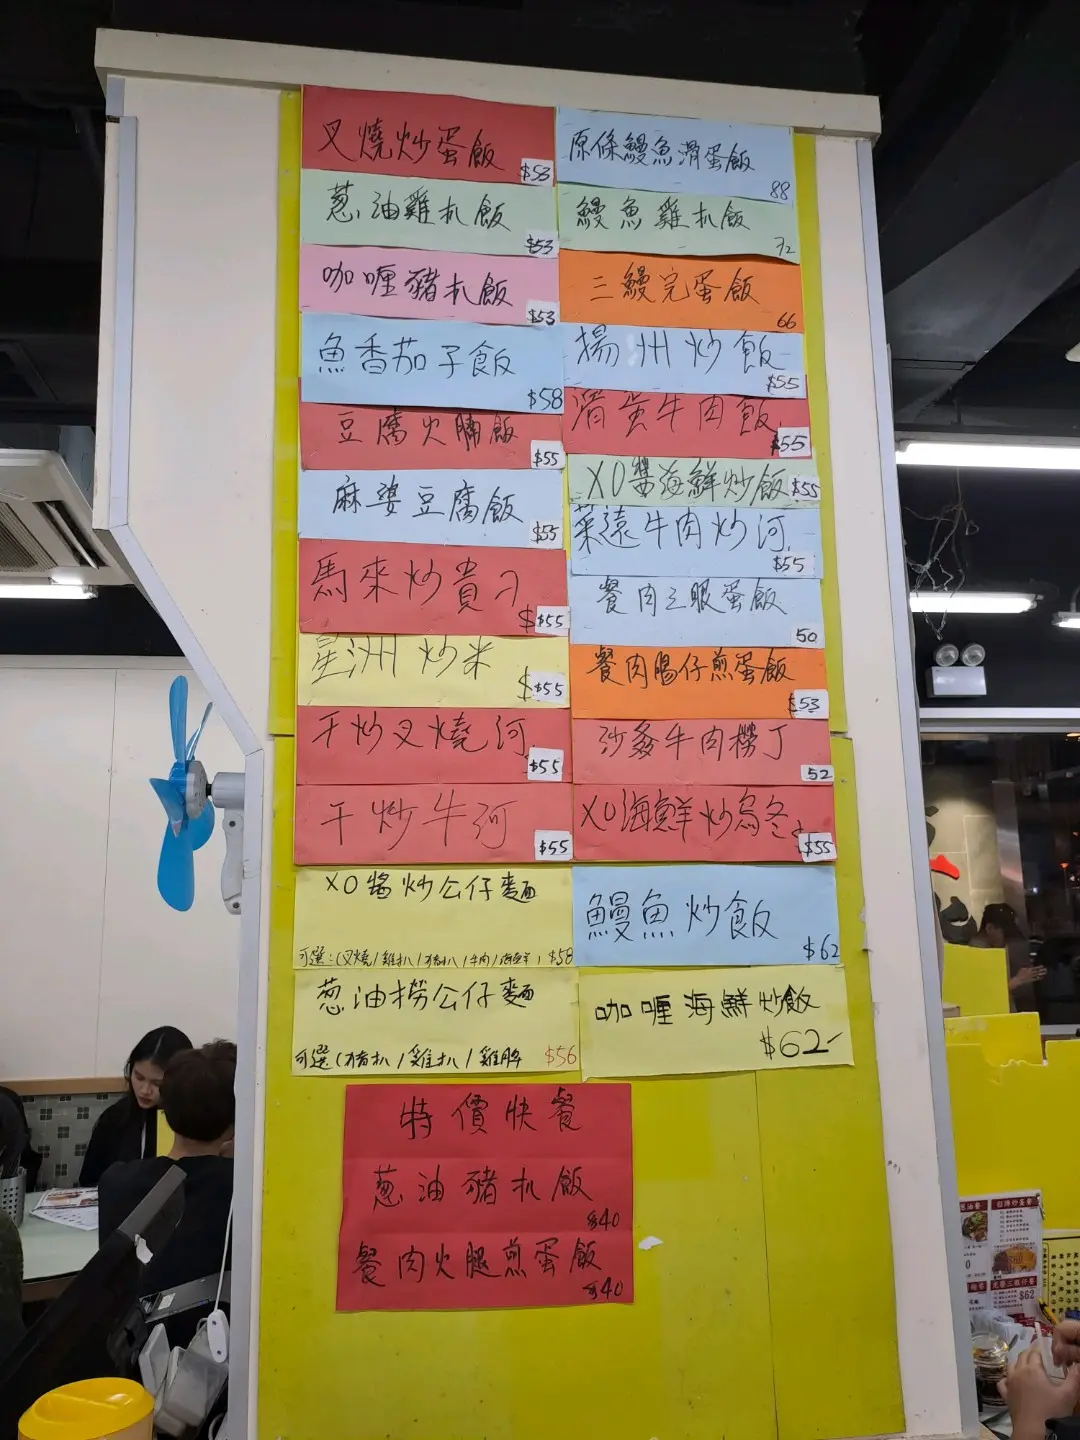 叉燒炒蛋飯 $53
葱油雞扒飯 $53
咖喱豬扒飯 $53
魚香茄子飯 $58
豆腐火腩飯 $55
麻婆豆腐飯 $55
馬來炒貴刁 $55
星洲炒米 $55
干炒叉燒河 $55
干炒牛河 $55
XO醬炒公仔麵
可選:(叉燒/雞扒/豬扒/牛肉/海鮮) $58
葱油撈公仔麵
可選(豬扒/雞扒/雞髀 $56
原條鰻魚滑蛋飯 88
鰻魚雞扒飯 72
三鰻完蛋飯 66
揚州炒飯 $55
滑蛋牛肉飯 $55
XO醬海鮮炒飯 $55
菜遠牛肉炒河 $55
餐肉之眼蛋飯 50
餐肉腸仔煎蛋飯 $53
沙爹牛肉撈丁 52
XO海鮮炒烏冬 $55
鰻魚炒飯 $62
咖喱海鮮炒飯
$62-
特價快餐
葱油豬扒飯
$40
餐肉火腿煎蛋飯
$40
$62